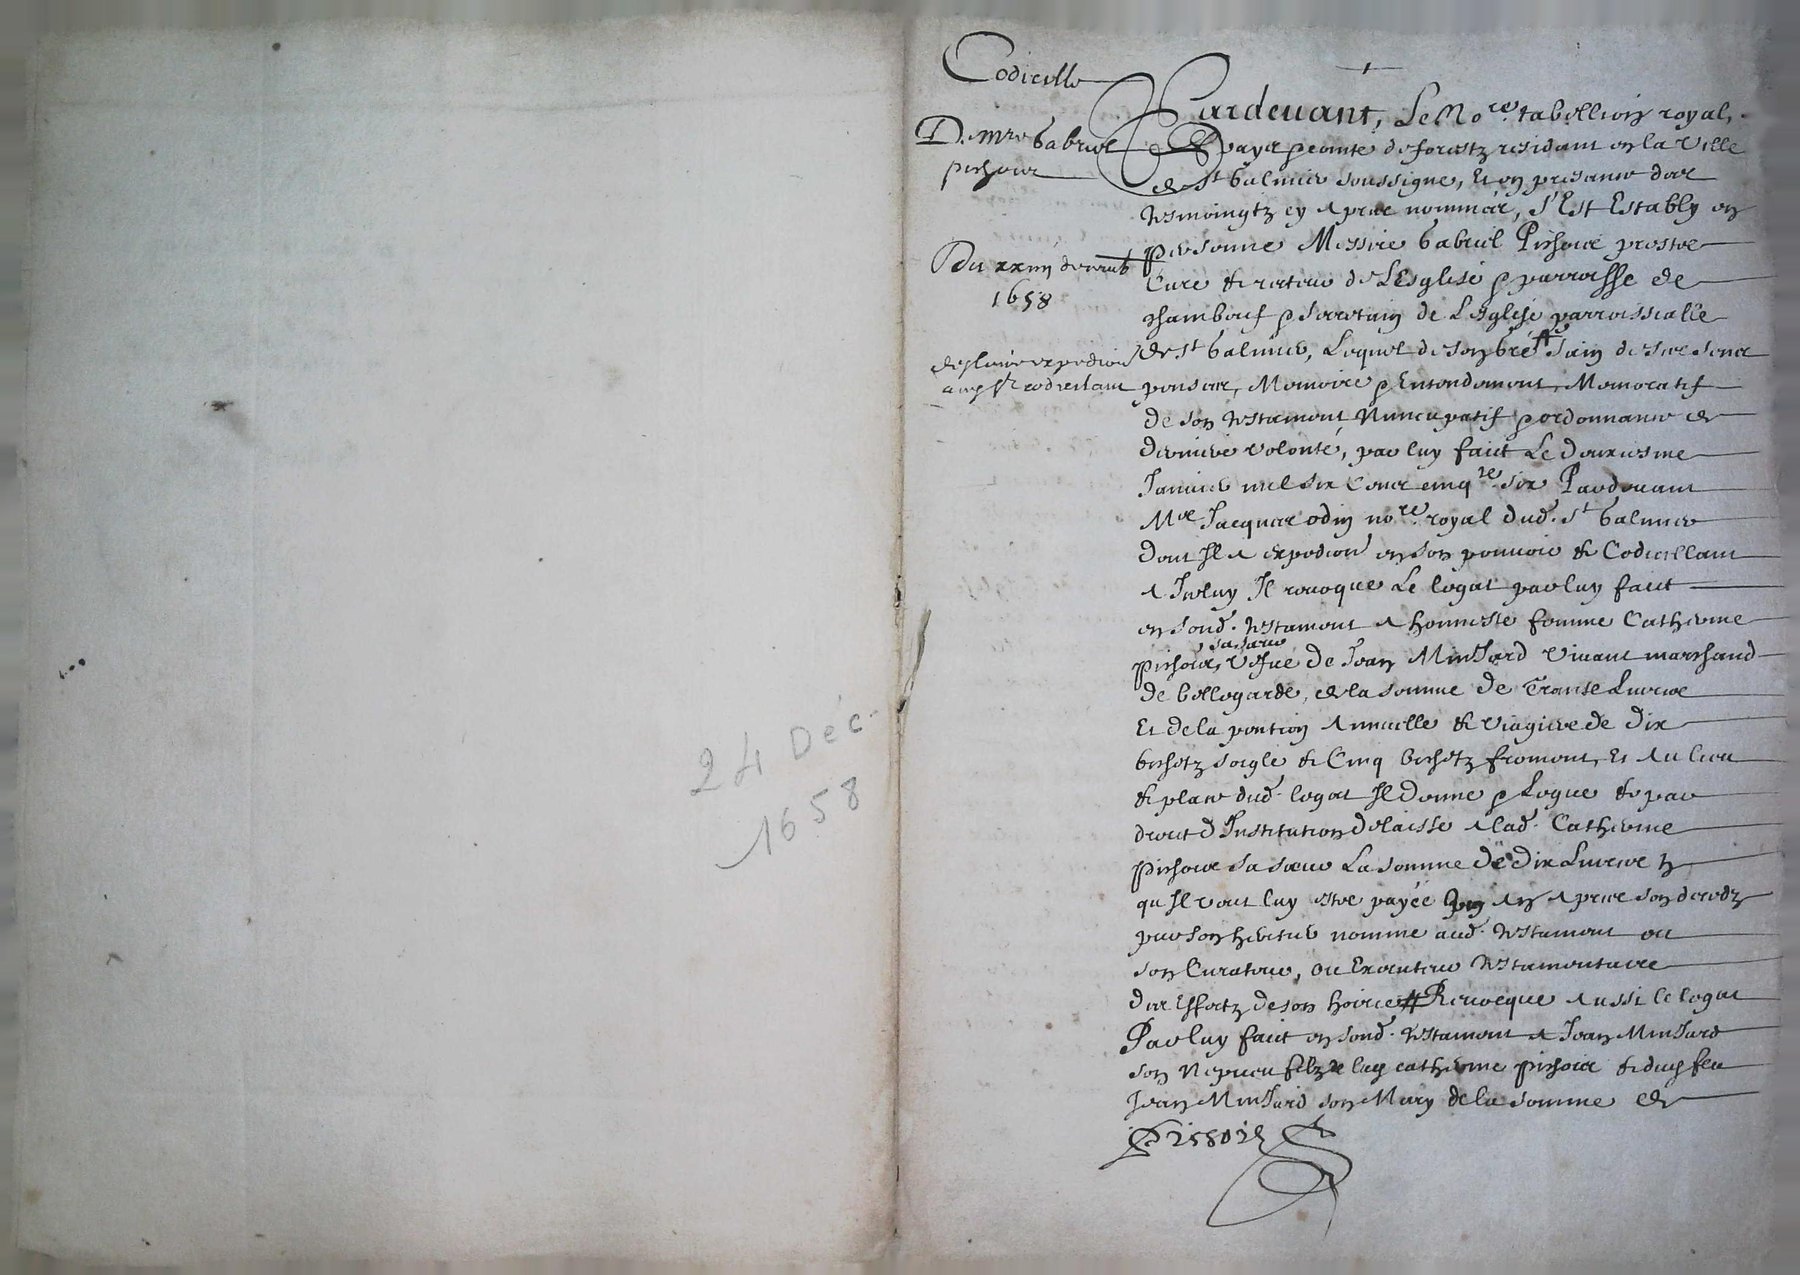 24 Déc.
1658
Codicille
De Mre Gabriel
pishour
Du xxiiij decemb
1658
Pardevant, Le No.re tabellion royal,
au payis p comte de forestz residant en la ville
de St Galmier soussigne, Et en presance des
tesmoingtz cy apres nommés, s'Est Establÿ en
personne Messire Gabriel Pishour prestre
Curé & recteur de L'Esglise p parroisse de
chambeuf p secretain de L'Esglise parroissialle
de St Galmier, Lequel de son bré sain de ses sens
pensées, Memoire p Entendement, Memoratif
de son testament Nuncupatif p ordonnance de
derniere volonté, par luy faict Le douziesme
Janvier mil six Cens cinq.te six Pardevant
Me Jacques odin no.re royal dud. St Galmier
dont Il a expedion en son pouvoir & Codicillant
a Iceluy Il revoque Le legat par luy faict
en sond. testament a honneste femme Catherine
sa sœur
pishour, vefue de Jean Minjard vivant marchand
de bellegarde, de la somme de Trante Livres
Et de la pention Annuelle & viagere de dix
bichetz seigle & Cinq bichetz froment, Et Au lieu
& place dud. legat Il Donne p Legue & par
droict d'Institution delaisse A lad. Catherine
pishour sa sœur La somme de dix Livres tz
qu'Il veut luy estre payée un an apres son decedz
par son heritier nomme aud. testament ou
son Curateur, ou Executeur testamentaire
des Effectz de son hoirie Revocque Aussi le legat
Par luy faict en sond. testament a Jean Minjard
son Nepveu filz a lad Catherine pishour & dud feu
Jean Minjard son Mary de la somme de